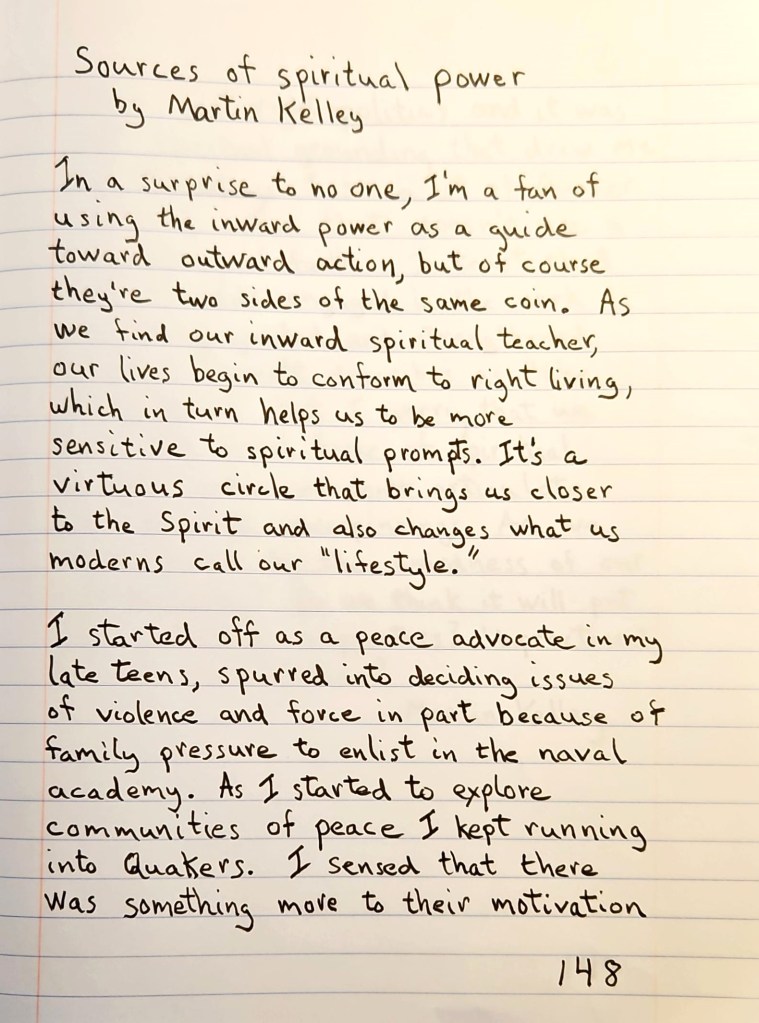 Sources of spiritual power
by Martin Kelley
In a surprise to no one, I'm a fan of
using the inward power as a guide
toward outward action, but of course
they're two sides of the same coin. As
we find our inward spiritual teacher,
our lives begin to conform to right living,
which in turn helps us to be more
sensitive to spiritual prompts. It's a
virtuous circle that brings us closer
to the Spirit and also changes what us
moderns call our "lifestyle."
I started off as a peace advocate in my
late teens, spurred into deciding issues
of violence and force in part because of
family pressure to enlist in the naval
academy. As I started to explore
communities of peace I kept running
into Quakers. I sensed that there
was something more to their motivation
148